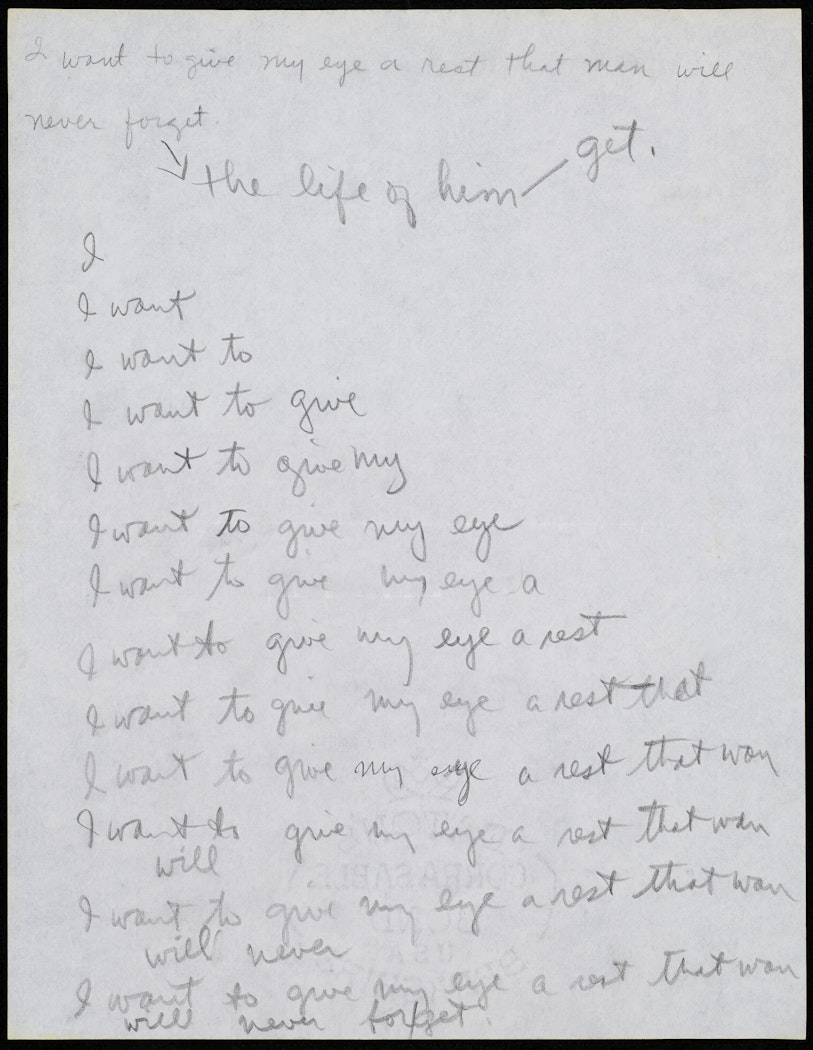 I want to give my eye a rest that man will
never forget.
the life of him — get.
I
I want
I want to
I want to give
I want to give my
I want to give my eye
I want to give my eye a
I want to give my eye a rest
I want to give my eye a rest that
I want to give my eye a rest that man
I want to give my eye a rest that man
will
I want to give my eye a rest that man
will never
I want to give my eye a rest that man
will never forget.